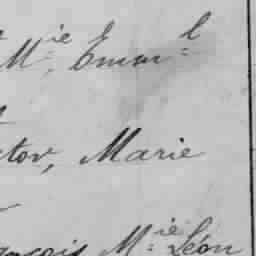 M.ie Emm.l
ctor, Marie
ançois M.ie Léon